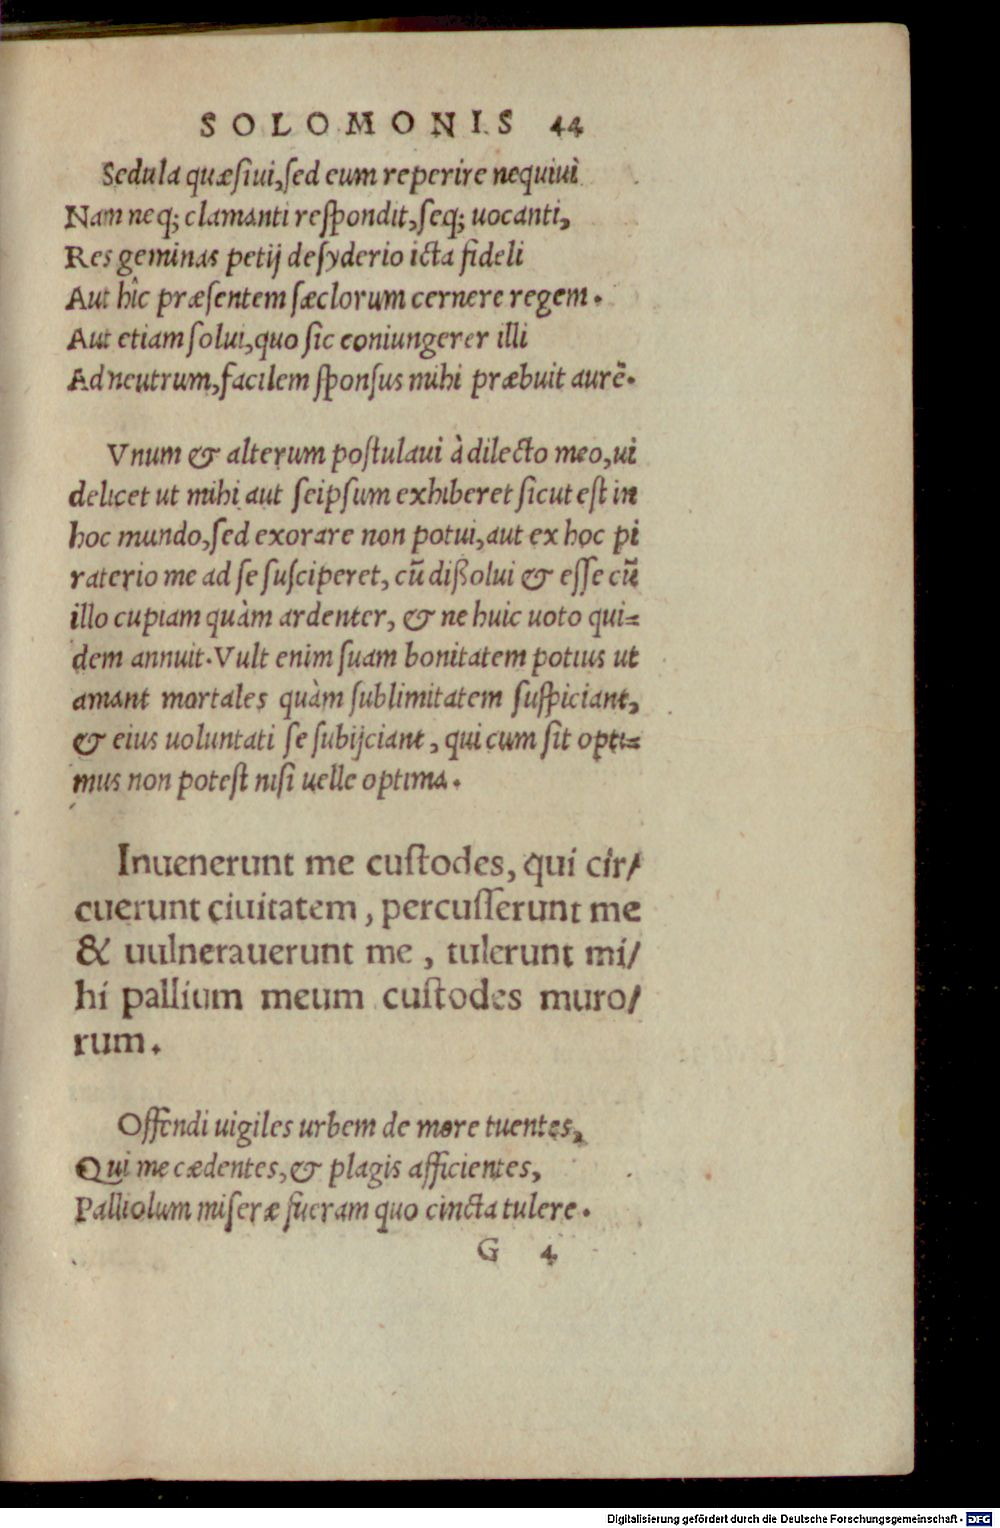 SOLOMONIS 44
Sedula quæsiui, sed eum reperire nequiui
Nam neq; clamanti respondit, seq; uocanti,
Res geminas petij desyderio icta fideli
Aut hîc præsentem sæclorum cernere regem.
Aut etiam solui, quo sic coniungerer illi
Ad neutrum, facilem sponsus mihi præbuit aurē.
Vnum & alterum postulaui à dilecto meo, ui
delicet ut mihi aut seipsum exhiberet sicut est in
hoc mundo, sed exorare non potui, aut ex hoc pi
raterio me ad se susciperet, cū dißolui & esse cū
illo cupiam quàm ardenter, & ne huic uoto qui=
dem annuit. Vult enim suam bonitatem potius ut
amant mortales quàm sublimitatem suspiciant,
& eius uoluntati se subijciant, qui cum sit opti=
mus non potest nisi uelle optima.
Inuenerunt me custodes, qui cir/
cuerunt ciuitatem, percusserunt me
& uulnerauerunt me, tulerunt mi/
hi pallium meum custodes muro/
rum.
Offendi uigiles urbem de more tuentes,
Qui me cædentes, & plagis afficientes,
Palliolum miseræ fueram quo cincta tulere.
G 4
Digitalisierung gefördert durch die Deutsche Forschungsgemeinschaft - DFG